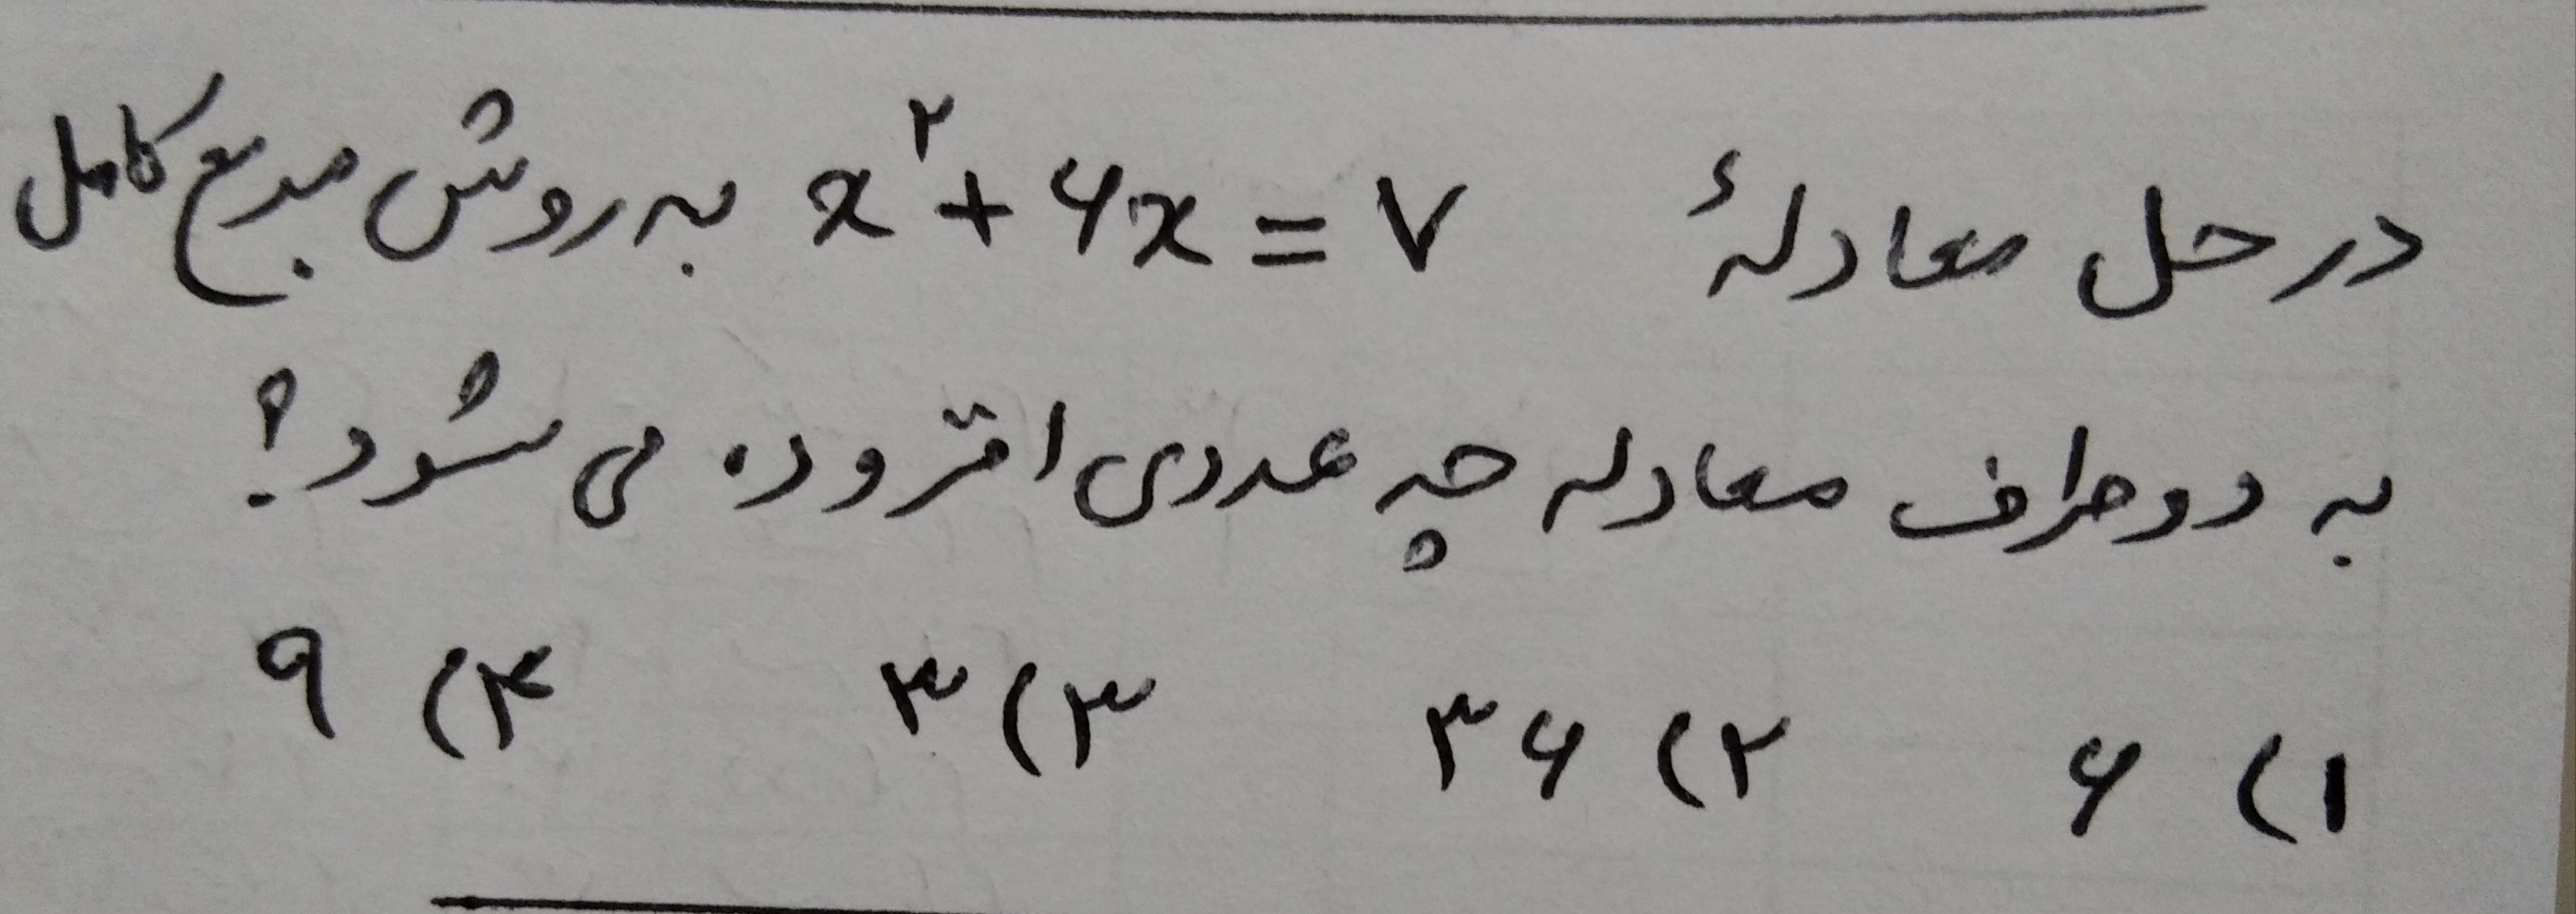 در حل معادلهٔ x² + ۶x = ۷ به روش مربع کامل
به دو طرف معادله چه عددی افزوده می شود؟
۱) ۶ ۲) ۳۶ ۳) ۳ ۴) ۹